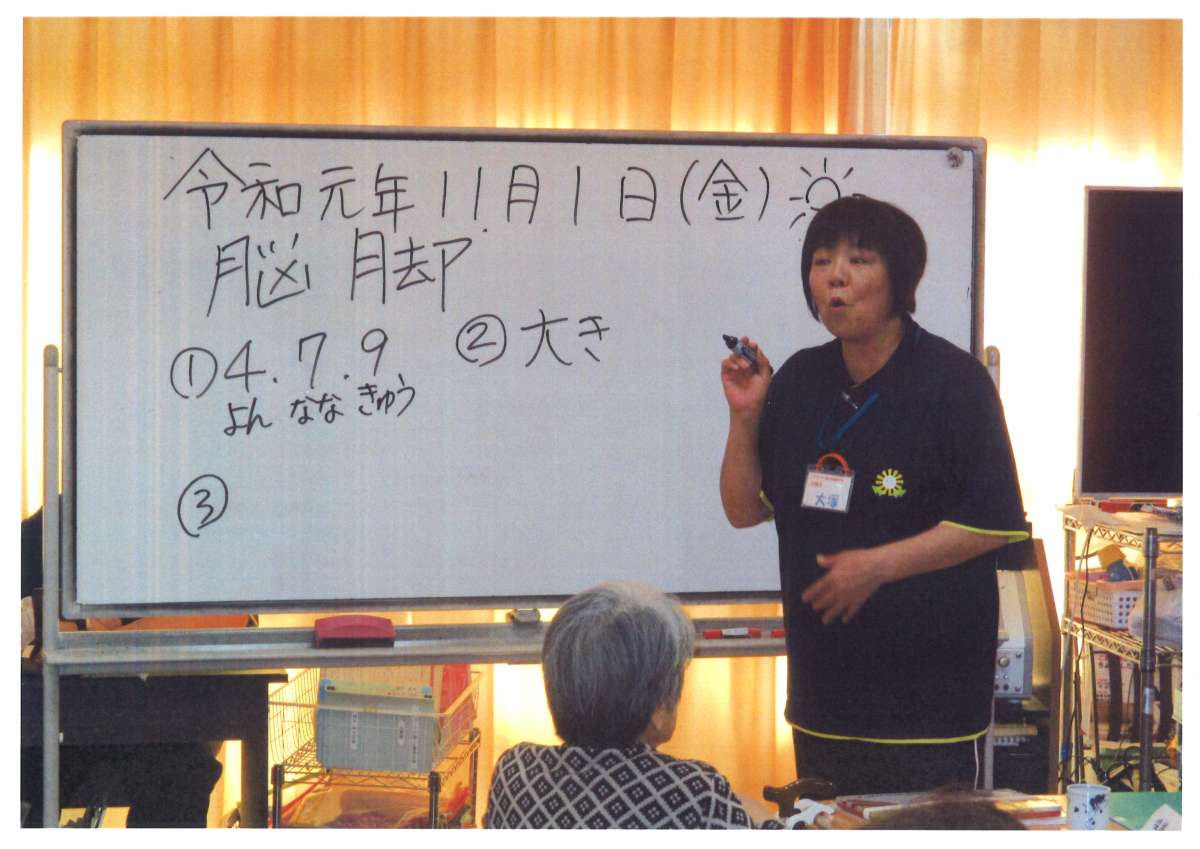 令和元年11月1日(金)
脳 脚
①4.7.9 ②大き
よん なな きゅう
③
大塚